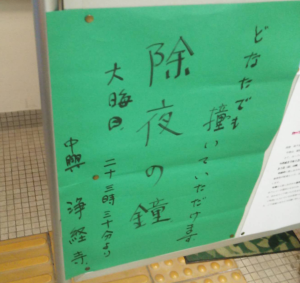 どなたでも
撞いていただけます
除夜の鐘
大晦日、二十三時三十分より
中興 浄経寺